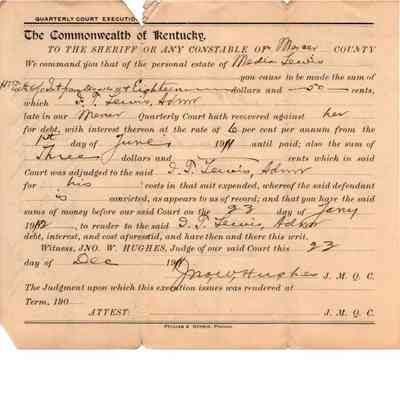 QUARTERLY COURT EXECUTION
The Commonwealth of Kentucky.
TO THE SHERIFF OR ANY CONSTABLE OF Mercer COUNTY
We command you that of the personal estate of Media Lewis
you cause to be made the sum of
Eighteen dollars and 50 cents,
which I. T. Lewis, Admr
late in our Mercer Quarterly Court hath recovered against her
for debt, with interest thereon at the rate of 6 per cent per annum from the
1st day of June 1911 until paid; also the sum of
Three dollars and cents which in said
Court was adjudged to the said I. T. Lewis, Admr
for his costs in that suit expended, whereof the said defendant
is convicted, as appears to us of record; and that you have the said
sums of money before our said Court on the 23 day of Jany
1912, to render to the said I. T. Lewis, Admr
debt, interest, and cost aforesaid, and have then and there this writ.
Witness, JNO. W. HUGHES, Judge of our said Court this 23
day of Dec 1911
Jno W Hughes J. M. Q. C.
The Judgment upon which this execution issues was rendered at
Term, 190
ATTEST: J. M. Q. C.